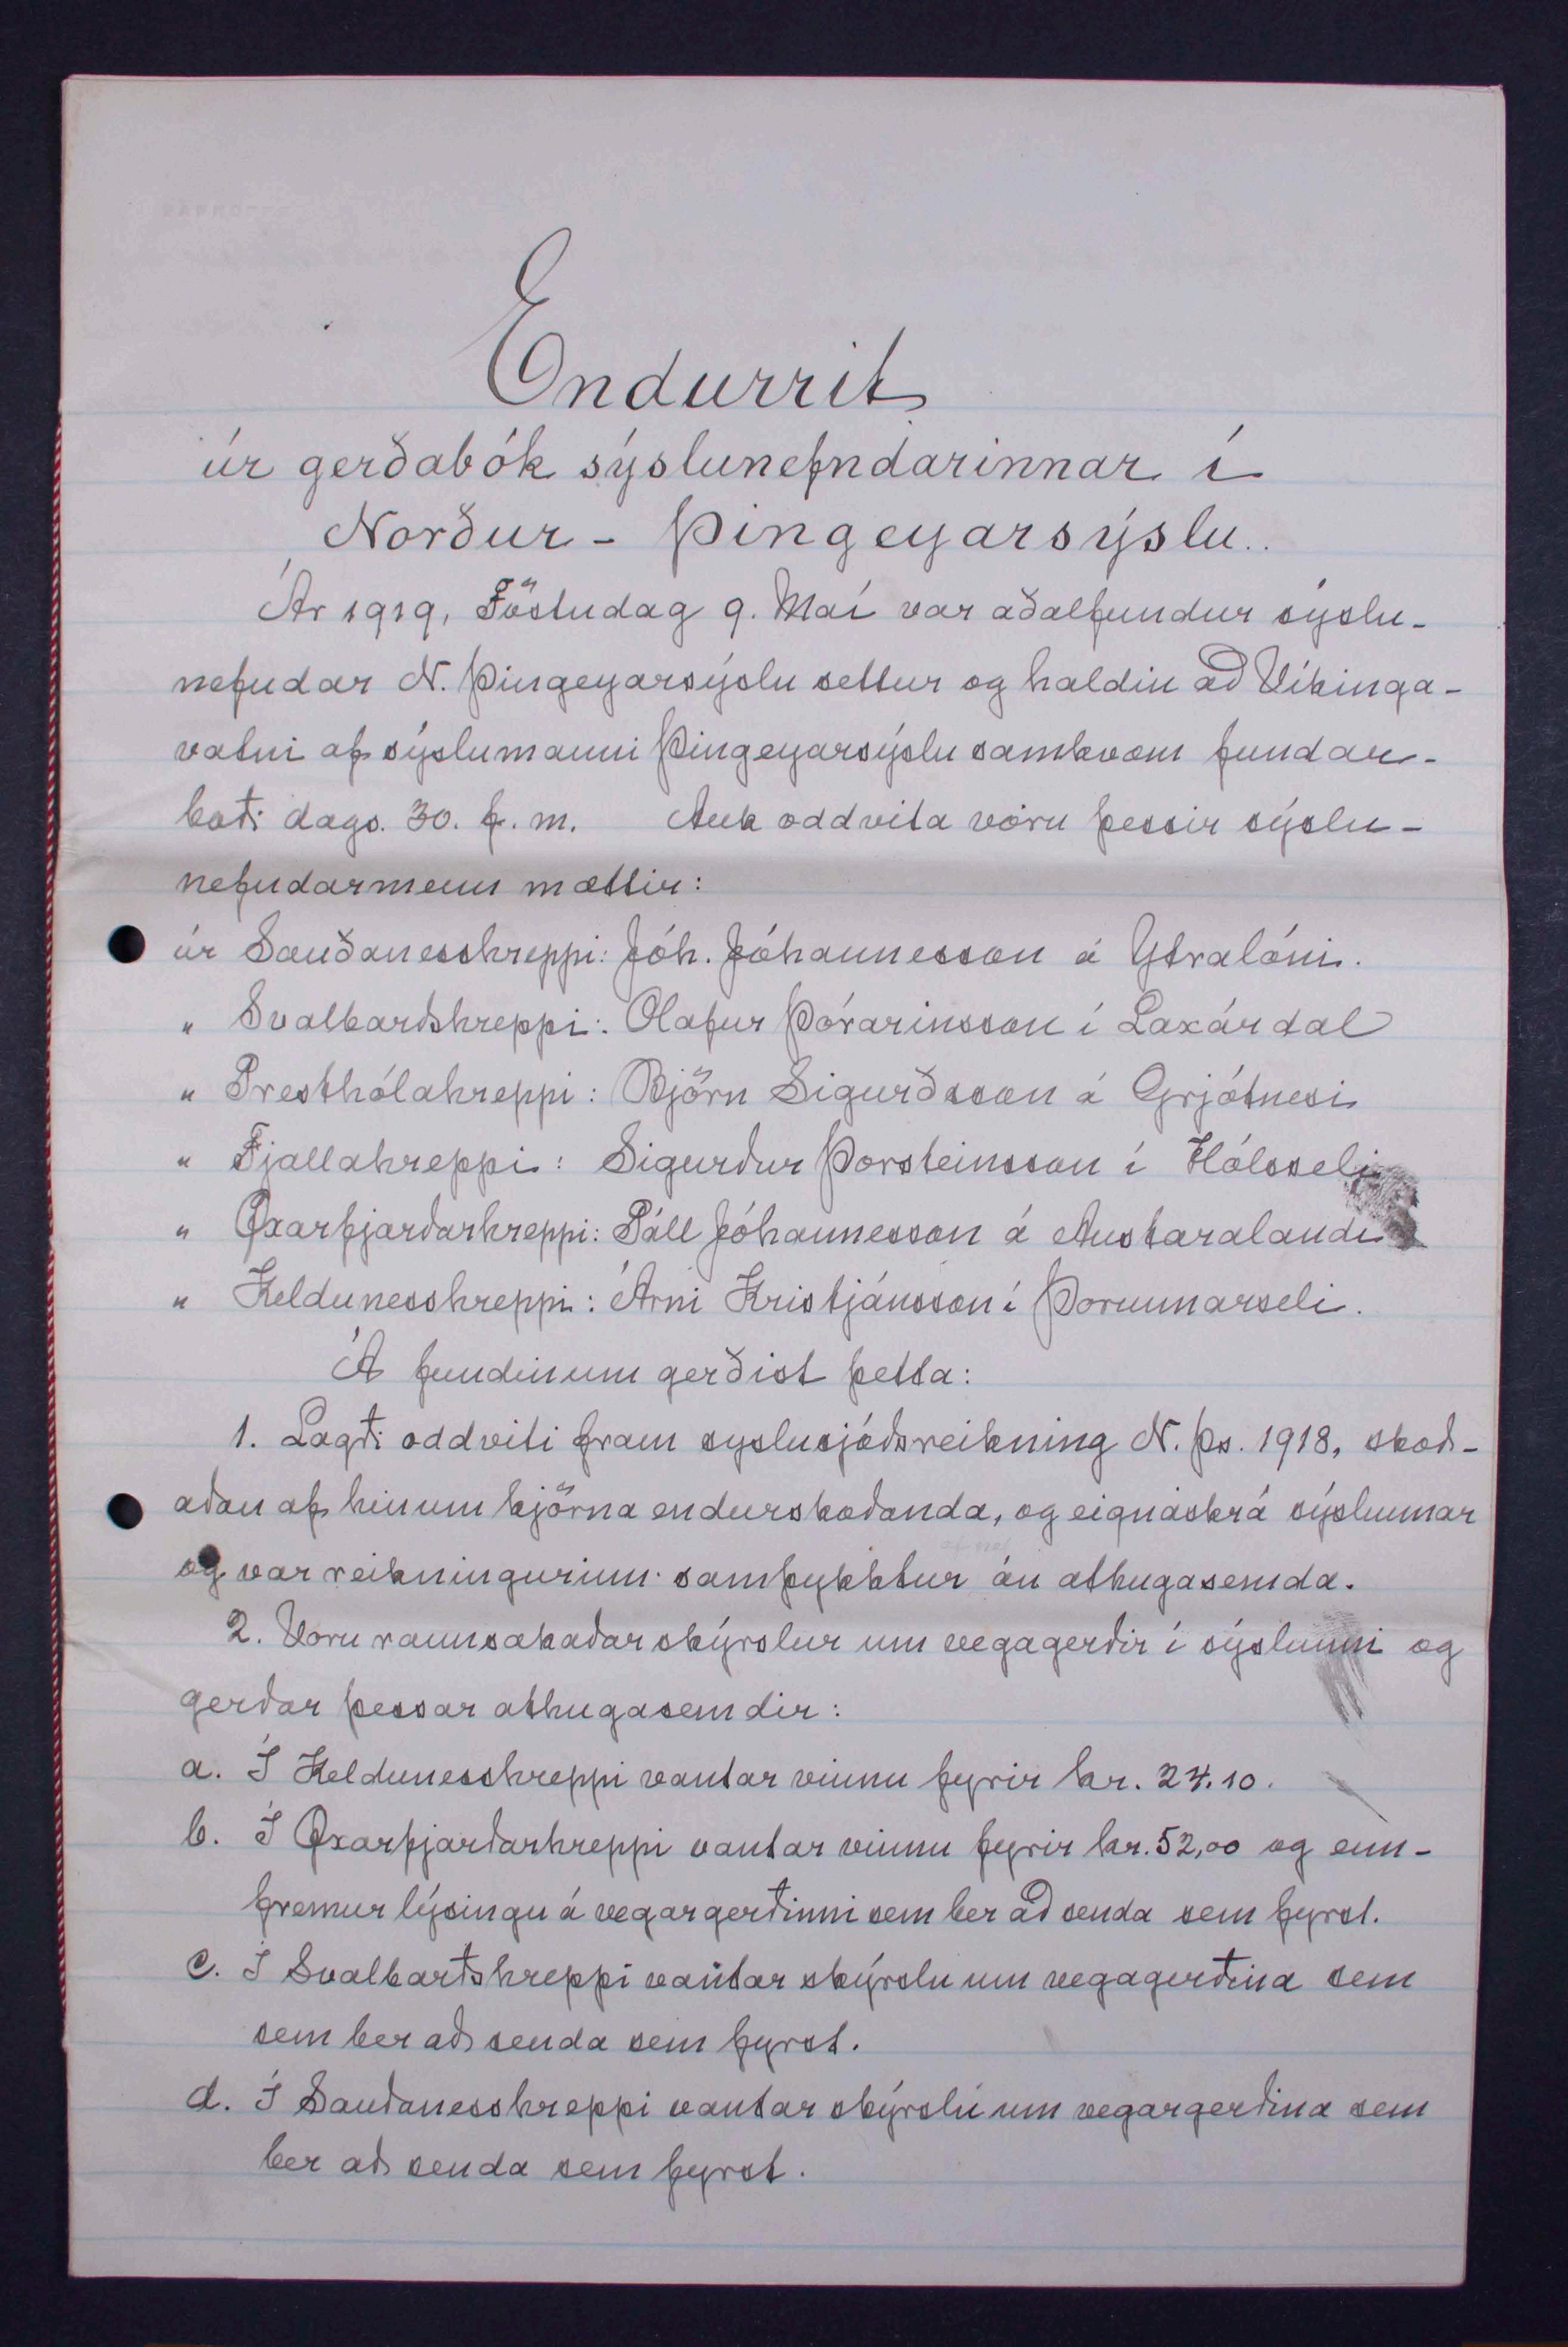 Endurrit
úr gerðabók sýslunefndarinnar í
Norður - Þingeyarsýslu.
Ár 1919, Föstudag 9. Maí var aðalfundur sýslu-
nefndar N. Þingeyarsýslu settur og haldin að Víkinga-
vatni af sýslumanni Þingeyarsýslu samkvæm fundar-
boði dags. 30. f. m. Auk oddvita vóru þessir sýslu-
nefndarmenn mættir:
úr Sauðanesshreppi: Jóh. Jóhannesson á Ytralóni.
" Svalbarðshreppi: Olafur Þórarinsson í Laxárdal
" Presthólahreppi: Björn Sigurðsson á Grjótnesi
" Fjallahreppi: Sigurður Þorsteinsson í Hólsseli
" Öxarfjarðarhreppi: Páll Jóhannesson á Austaralandi
" Keldunesshreppi: Árni Kristjánsson í Þorunnarseli.
Á fundinum gerðist þetta:
1. Lagði oddviti fram syslusjóðsreikning N. Þs. 1918, skoð-
aðan af hinum kjörna endurskoðanda, og eignaskrá sýslunnar
og var reikningurinn samþykktur án athugasemda.
2. Voru rannsakaðar skýrslur um vegagerðir í sýslunni og
gerðar þessar athugasemdir:
a. Í Keldunesshreppi vantar vinnu fyrir kr. 24.10.
b. Í Öxarfjarðarhreppi vantar vinnu fyrir kr. 52,00 og enn-
fremur lýsingu á vegargerðinni sem ber að senda sem fyrst.
c. Í Svalbarðshreppi vantar skýrslu um vegagerðina sem
sem ber að senda sem fyrst.
d. Í Sauðanesshreppi vantar skýrslu um vegargerðina sem
ber að senda sem fyrst.